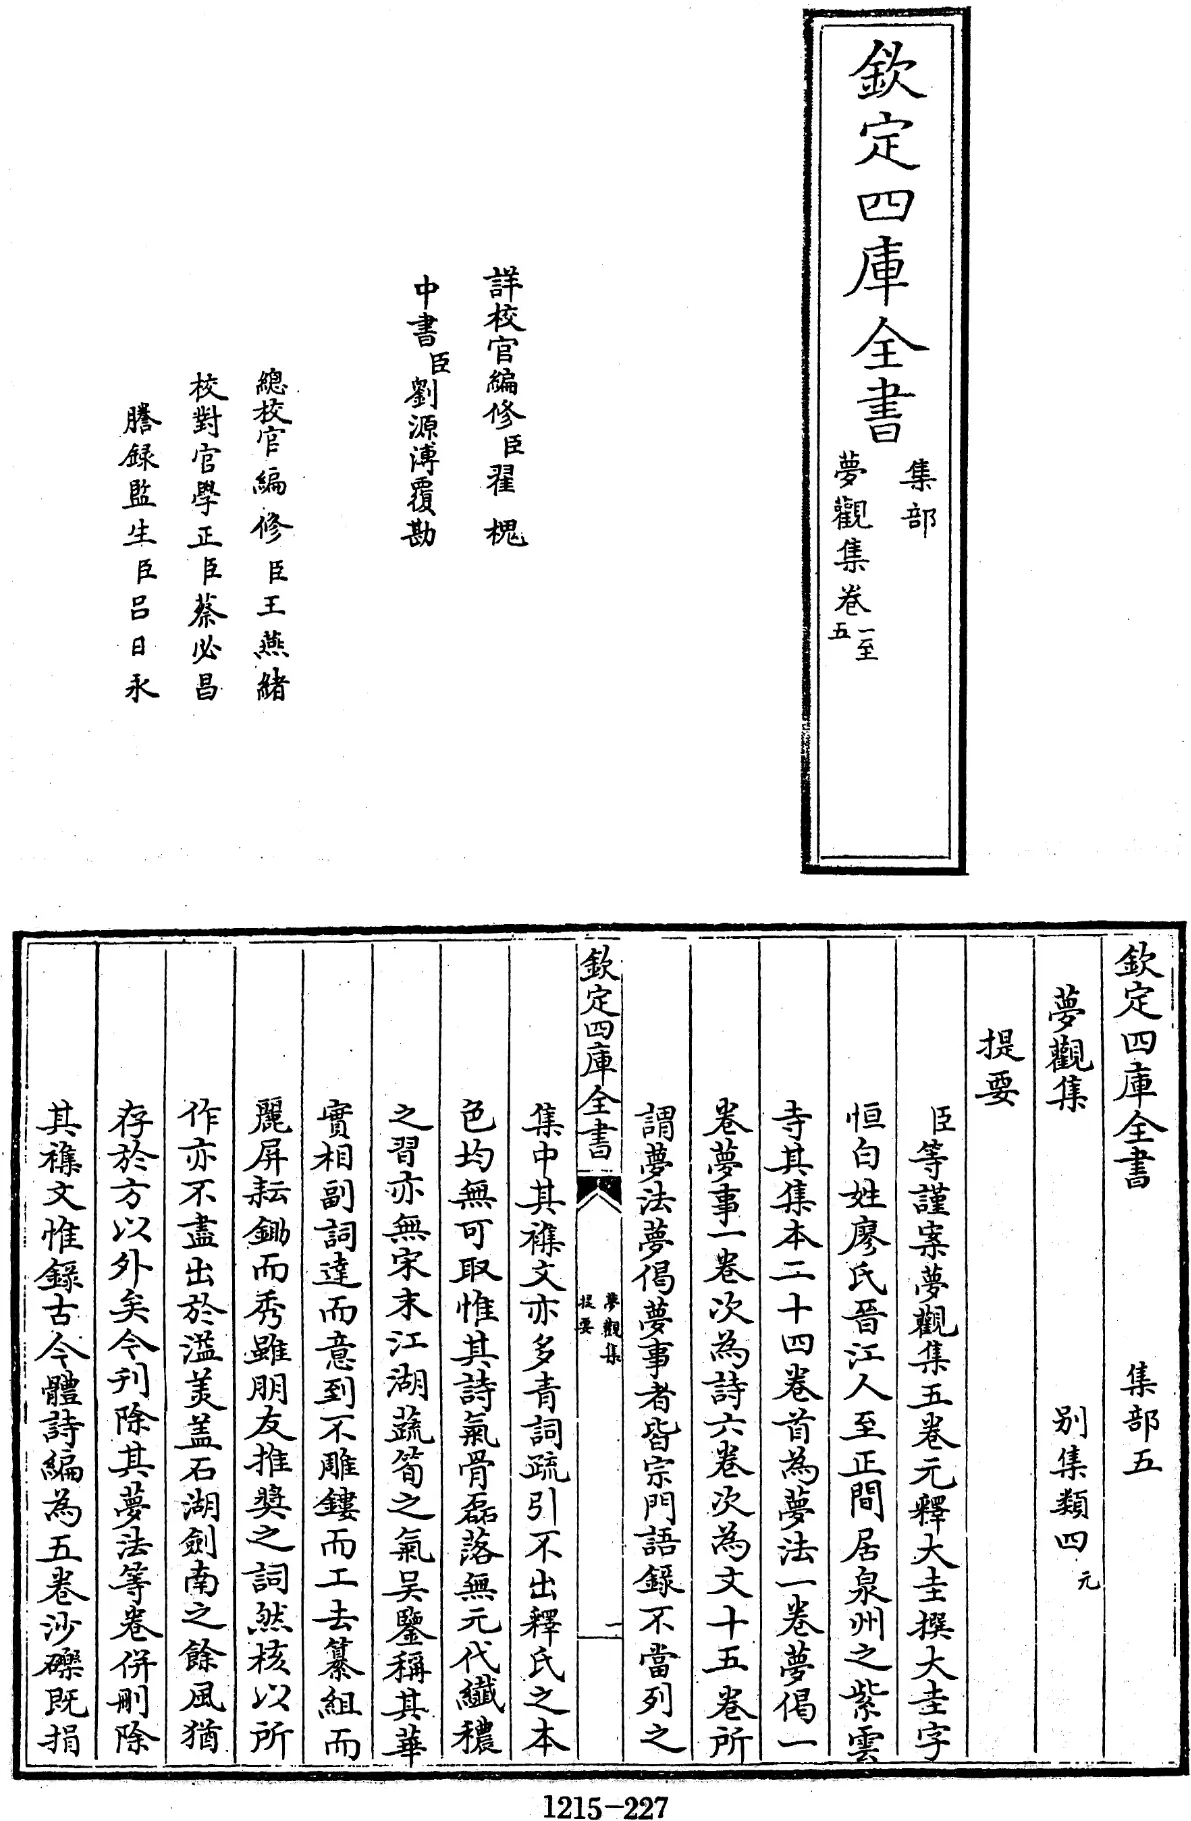 欽定四庫全書
集部
夢觀集卷一至五
詳校官編修臣翟槐
中書臣劉源溥覆勘
總校官編修臣王燕緒
校對官學正臣蔡必昌
謄録監生臣呂日永
欽定四庫全書 集部五
夢觀集 别集類四元
提要
臣等謹案夢觀集五卷元釋大圭撰大圭字
恒白姓廖氏晉江人至正間居泉州之紫雲
寺其集本二十四卷首為夢法一卷夢偈一
卷夢事一卷次為詩六卷次為文十五卷所
謂夢法夢偈夢事者皆宗門語錄不當列之
欽定四庫全書
夢觀集
提要
一
集中其襍文亦多青詞疏引不出釋氏之本
色均無可取惟其詩氣骨磊落無元代纖穠
之習亦無宋末江湖蔬筍之氣吴鑒稱其華
實相副詞達而意到不雕鏤而工去纂組而
麗屏耘鋤而秀雖朋友推奬之詞然核以所
作亦不盡出於溢美盖石湖劍南之餘風猶
存於方以外矣今刋除其夢法等卷併刪除
其襍文惟錄古今體詩編為五卷沙礫既捐
1215-227